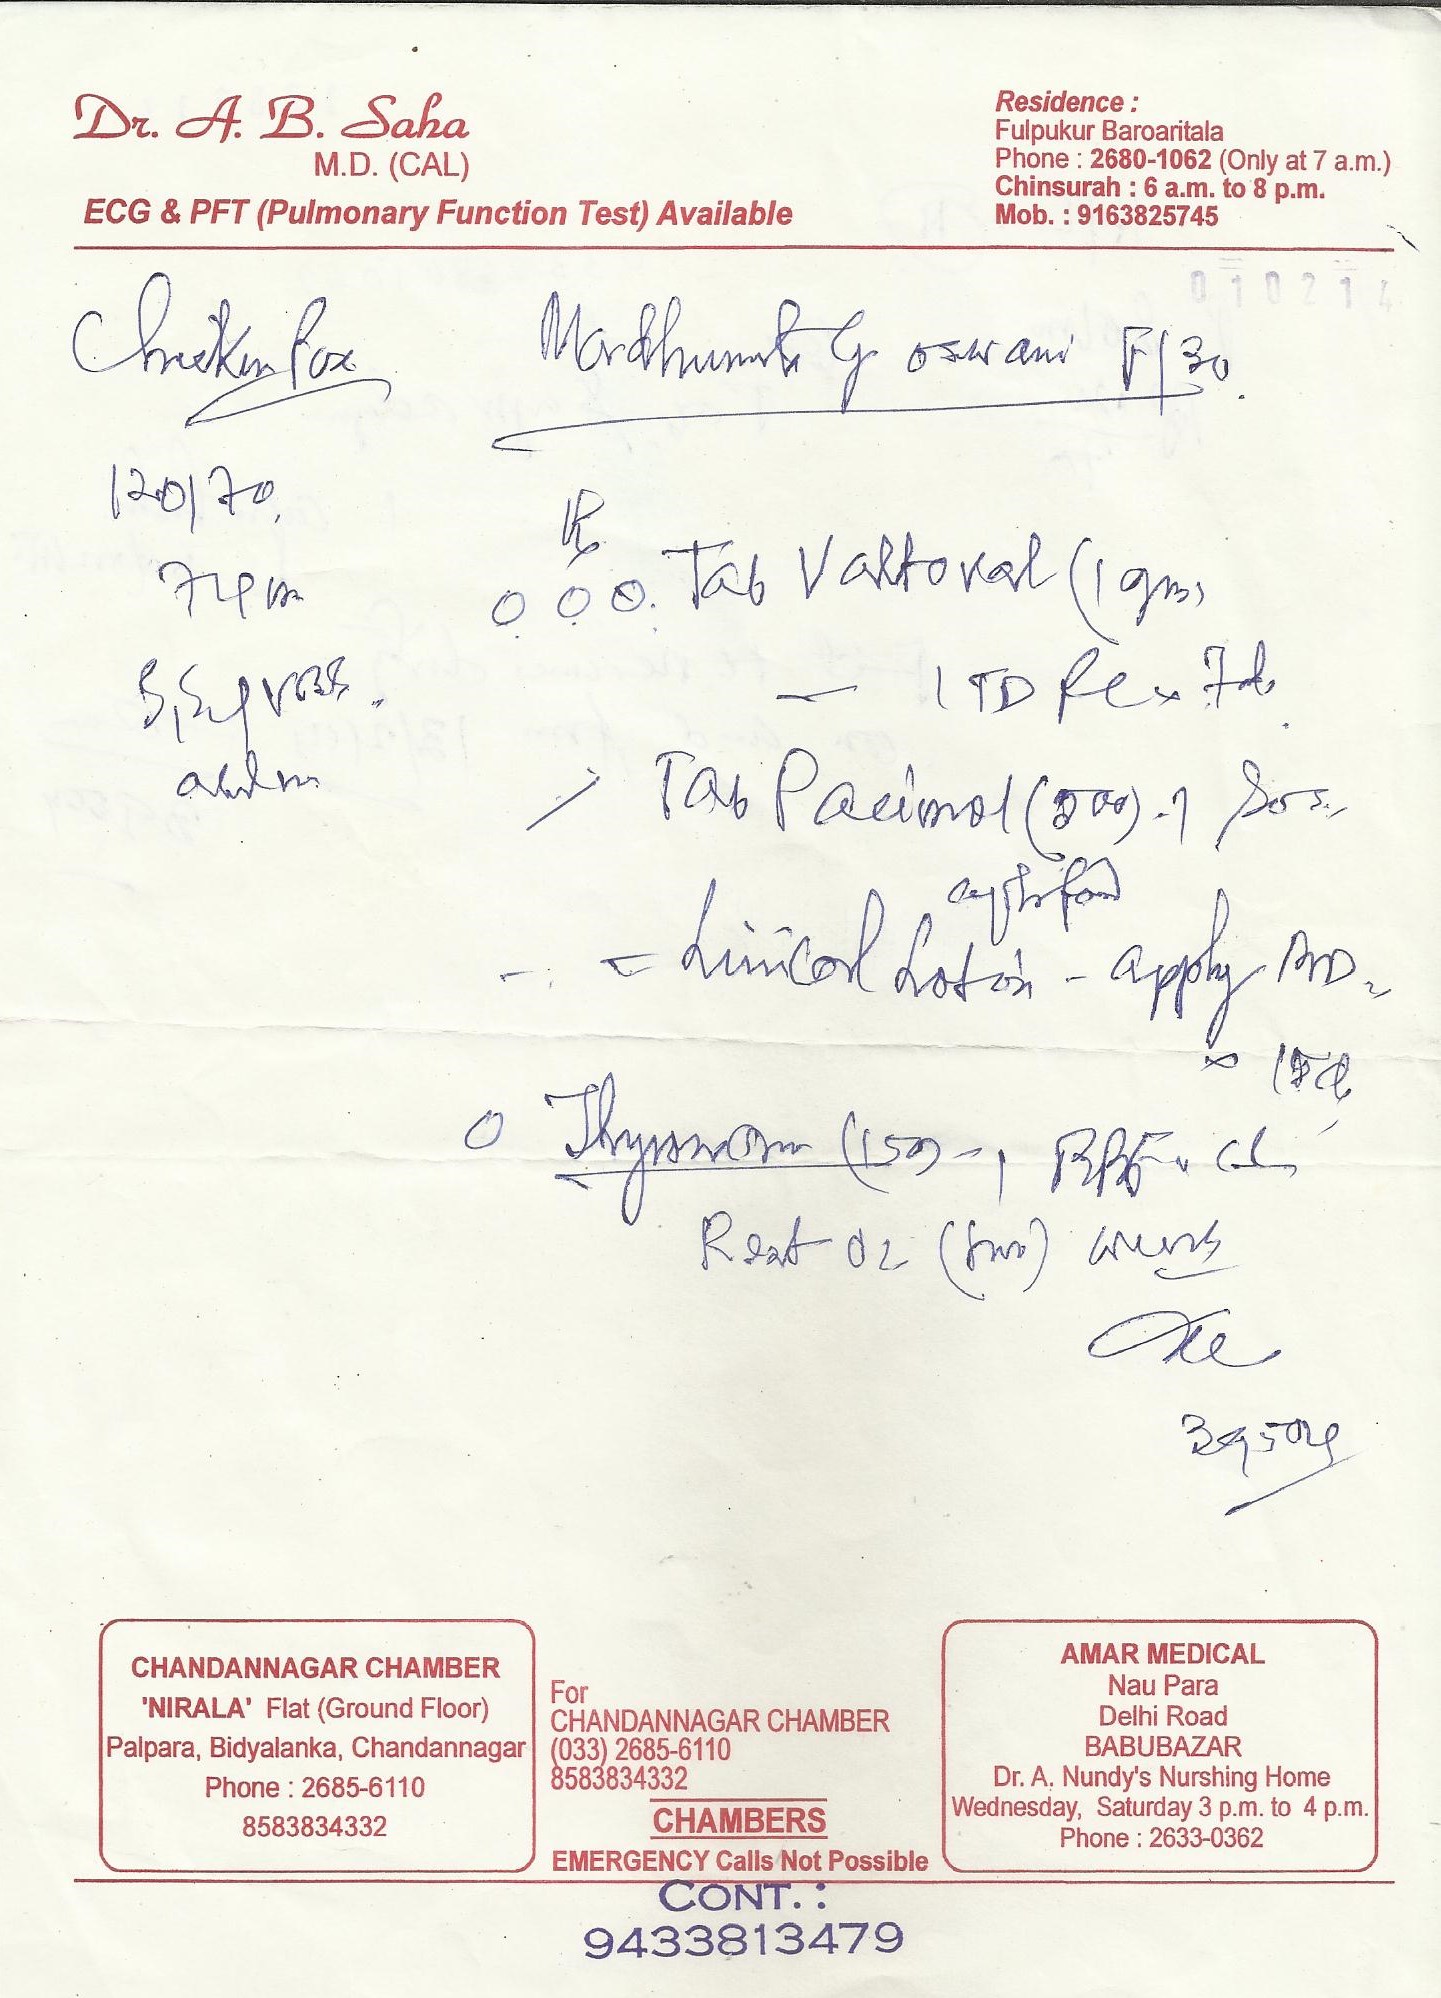 Dr. A. B. Saha
M.D. (CAL)
ECG & PFT (Pulmonary Function Test) Available
Residence :
Fulpukur Baroaritala
Phone : 2680-1062 (Only at 7 a.m.)
Chinsurah : 6 a.m. to 8 p.m.
Mob. : 9163825745
010214
Chicken Pox
Goswami F/30
120/70
Rx
Tab Valtoval (1 gm)
1 TD x 7d
Tab Pacimol (500) - 1 SOS
Lotion - apply BD
x 15d
(150) - 1 BBF
Rest 02 (two) weeks
CHANDANNAGAR CHAMBER
'NIRALA' Flat (Ground Floor)
Palpara, Bidyalanka, Chandannagar
Phone : 2685-6110
8583834332
For
CHANDANNAGAR CHAMBER
(033) 2685-6110
8583834332
CHAMBERS
EMERGENCY Calls Not Possible
AMAR MEDICAL
Nau Para
Delhi Road
BABUBAZAR
Dr. A. Nundy's Nurshing Home
Wednesday, Saturday 3 p.m. to 4 p.m.
Phone : 2633-0362
CONT. :
9433813479